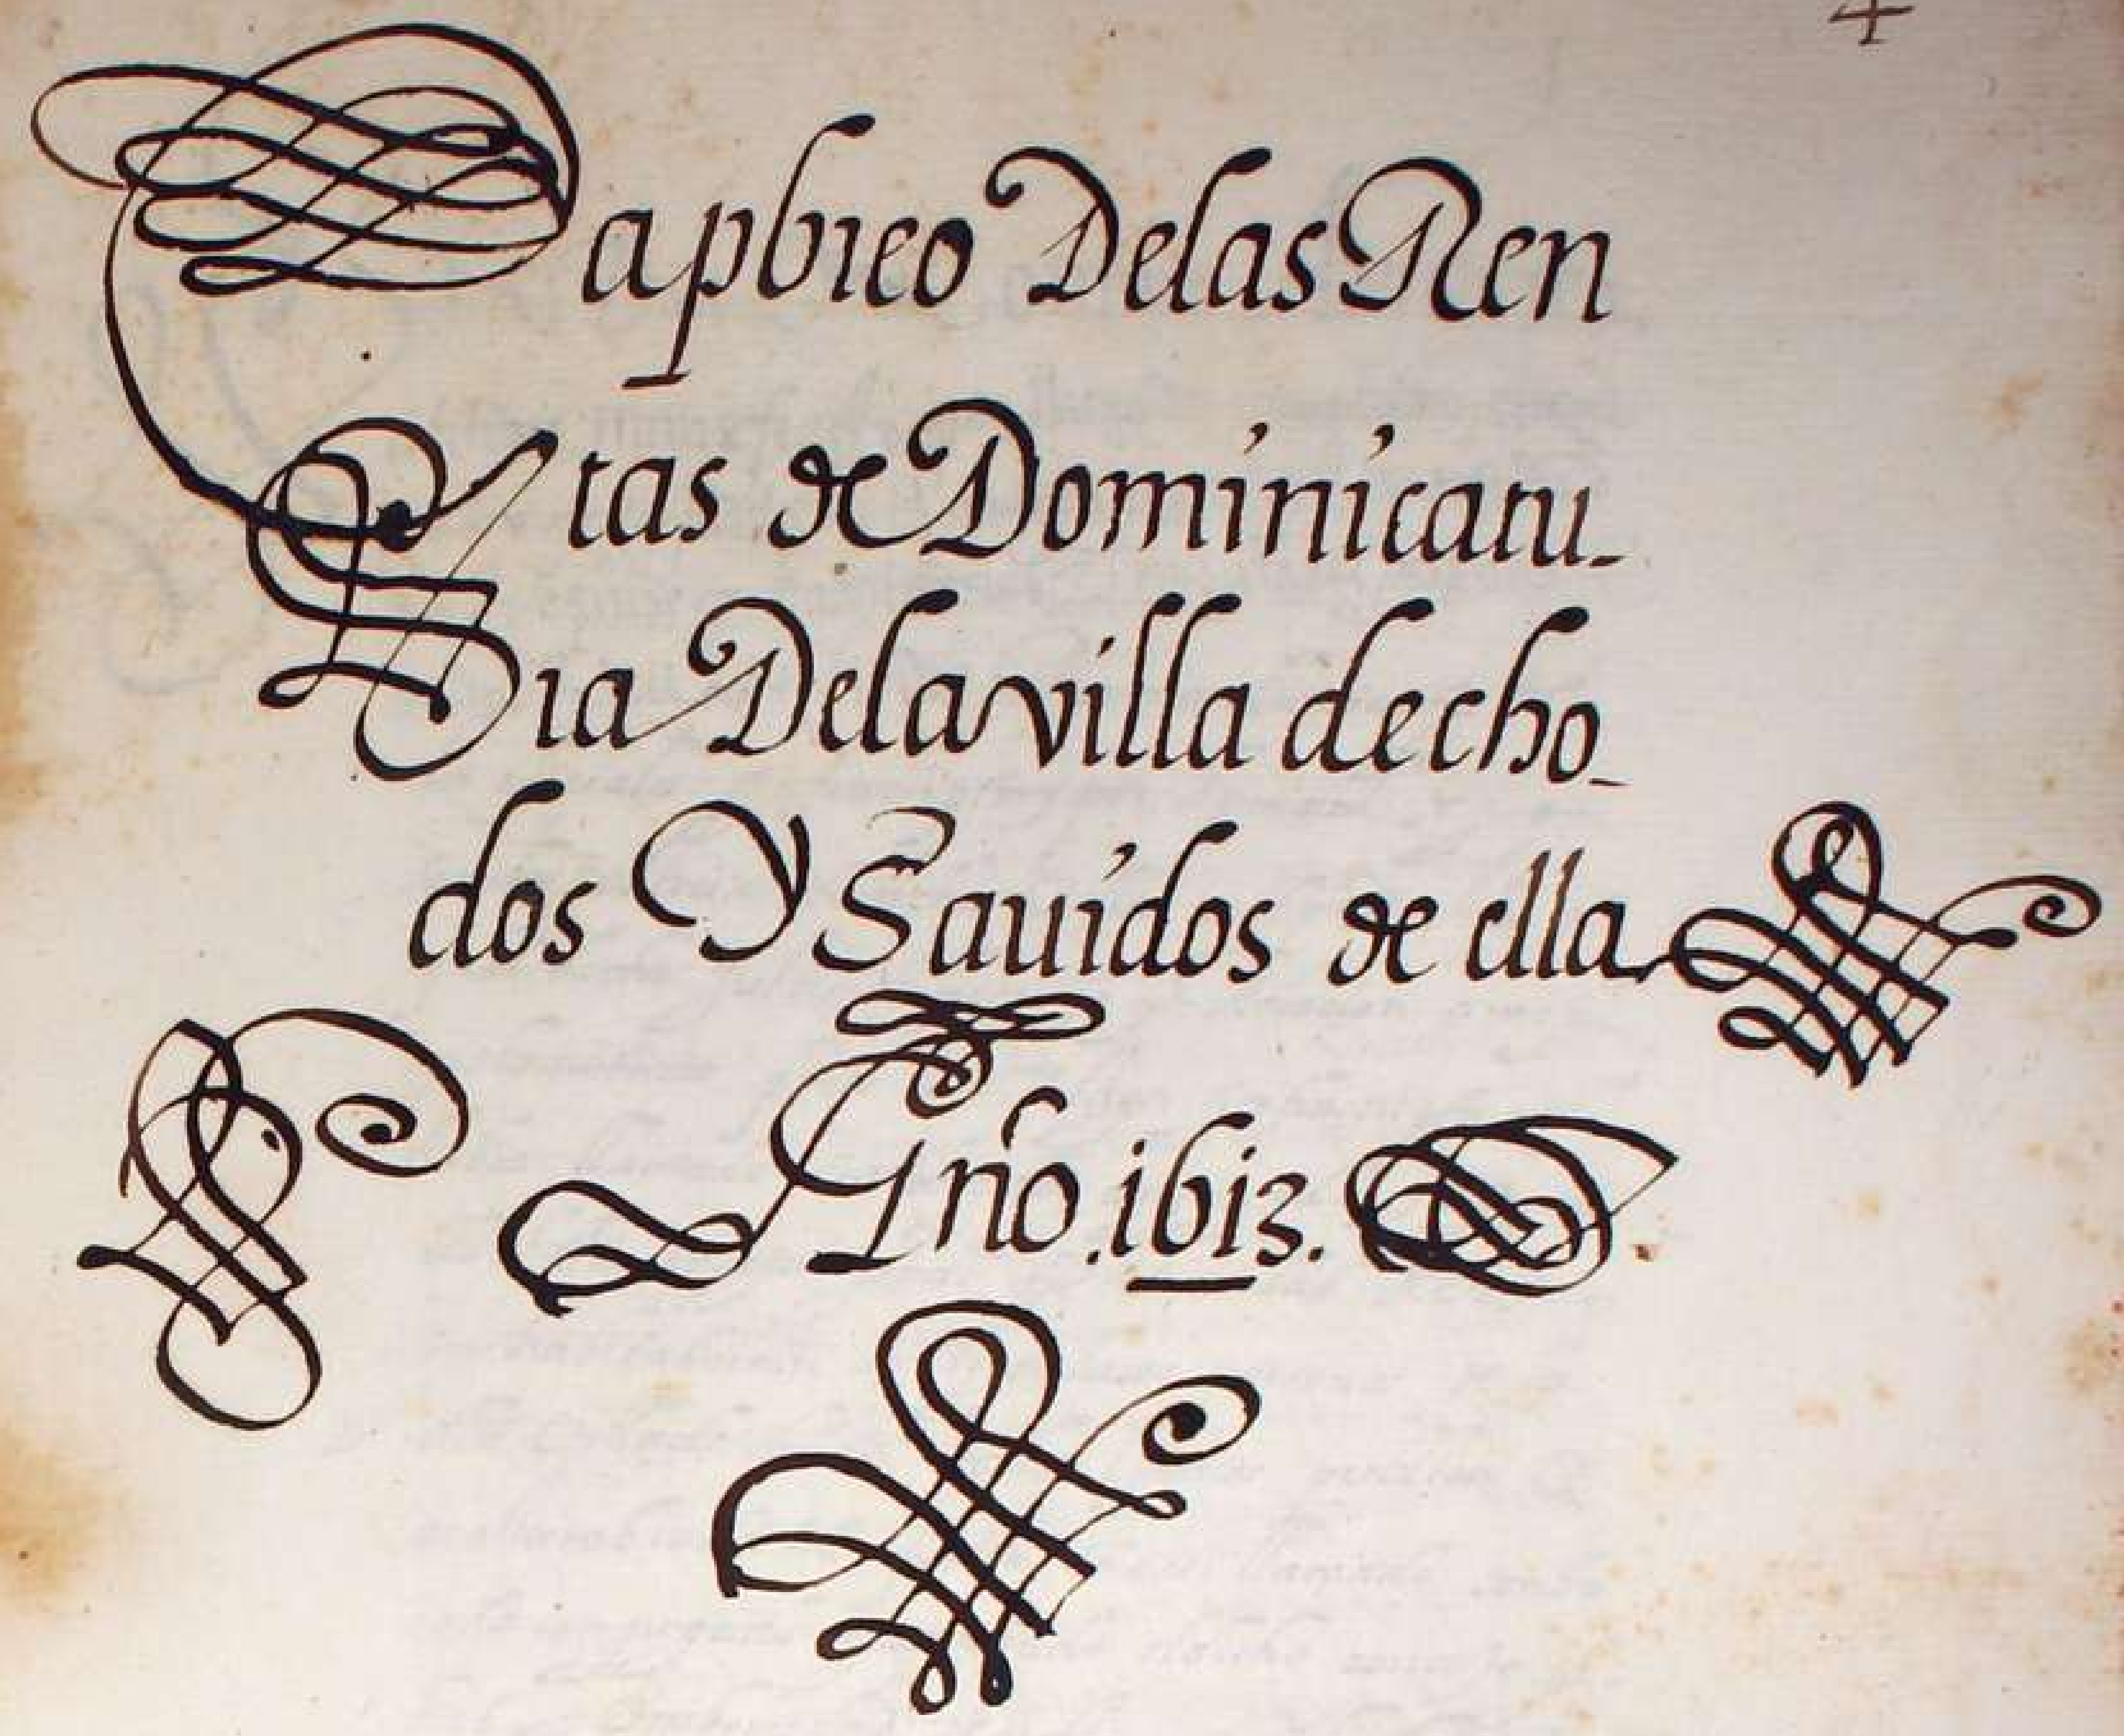 Capbreo Delas Ren
tas de Dominicatu-
ra Dela villa decho-
dos Y Sauidos de ella
Año .1613.